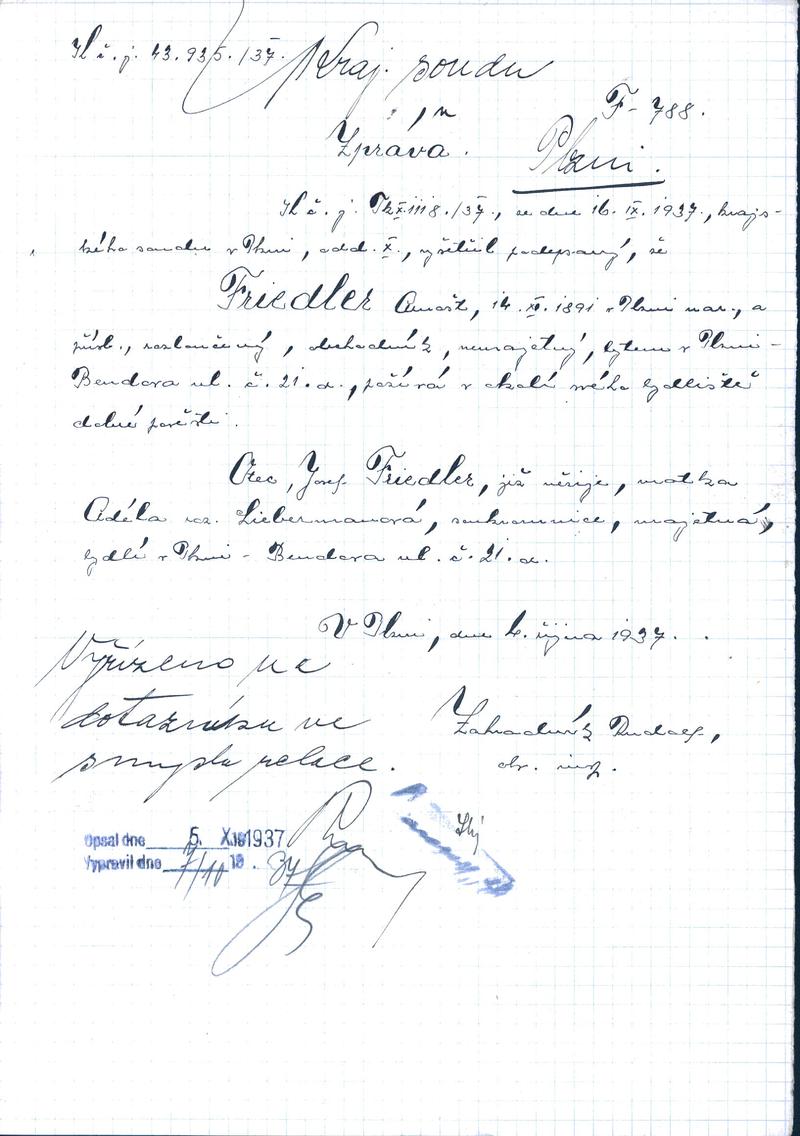 K č. j. 43.935./37.
Kraj. soudu
F-788.
Zpráva.
v
Plzni.
K č. j. Tk X 1118./37., ze dne 16. IX. 1937., krajs-
kého soudu v Plzni, odd. X., vyšetřil podepsaný, že
Friedler Arnošt, 14. XI. 1891 v Plzni nar., a
přísl., rozloučený, obchodník, nemajetný, bytem v Plzni-
Bendova ul. č. 21. a., požívá v okolí svého bydliště
dobré pověsti.
Otec, Josef Friedler, již nežije, matka
Adéla roz. Liebermanová, soukromnice, majetná,
bydlí v Plzni - Bendova ul. č. 21. a.
V Plzni, dne 4. října 1937.
Vyřízeno na
dotazníku ve
smyslu relace.
Zahradník Rudolf,
obv. insp.
Opsal dne 5. X. 1937
Vypravil dne 7/10 19. 37